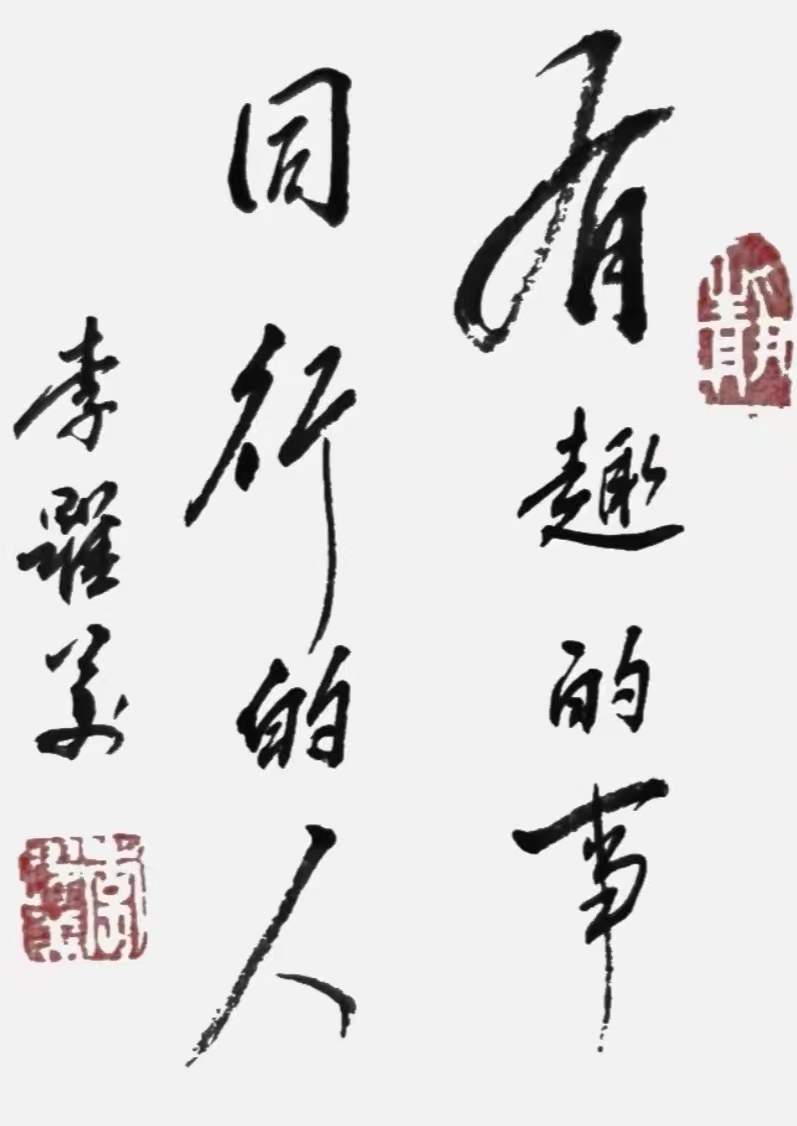 有趣的事
同行的人
李跃
静